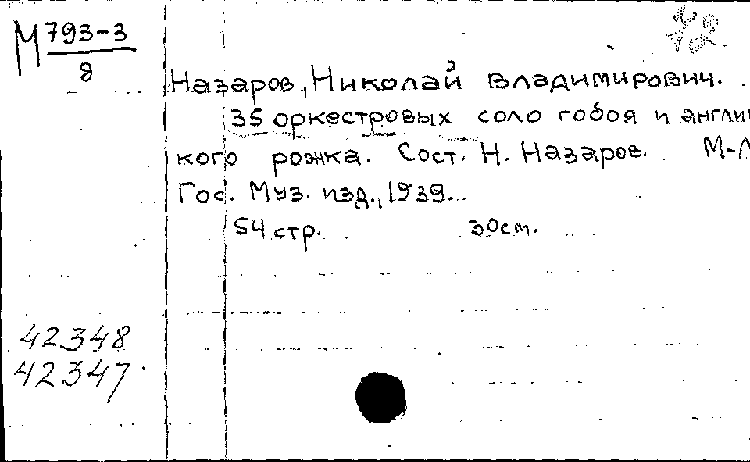 М 793-3
8
72
Назаров, Николай Владимирович.
35 оркестровых соло гобоя и англий
кого рожка. Сост. Н. Назаров. М-Л
Гос. Муз. изд., 1939.
54 стр. 30 см.
42348
42347